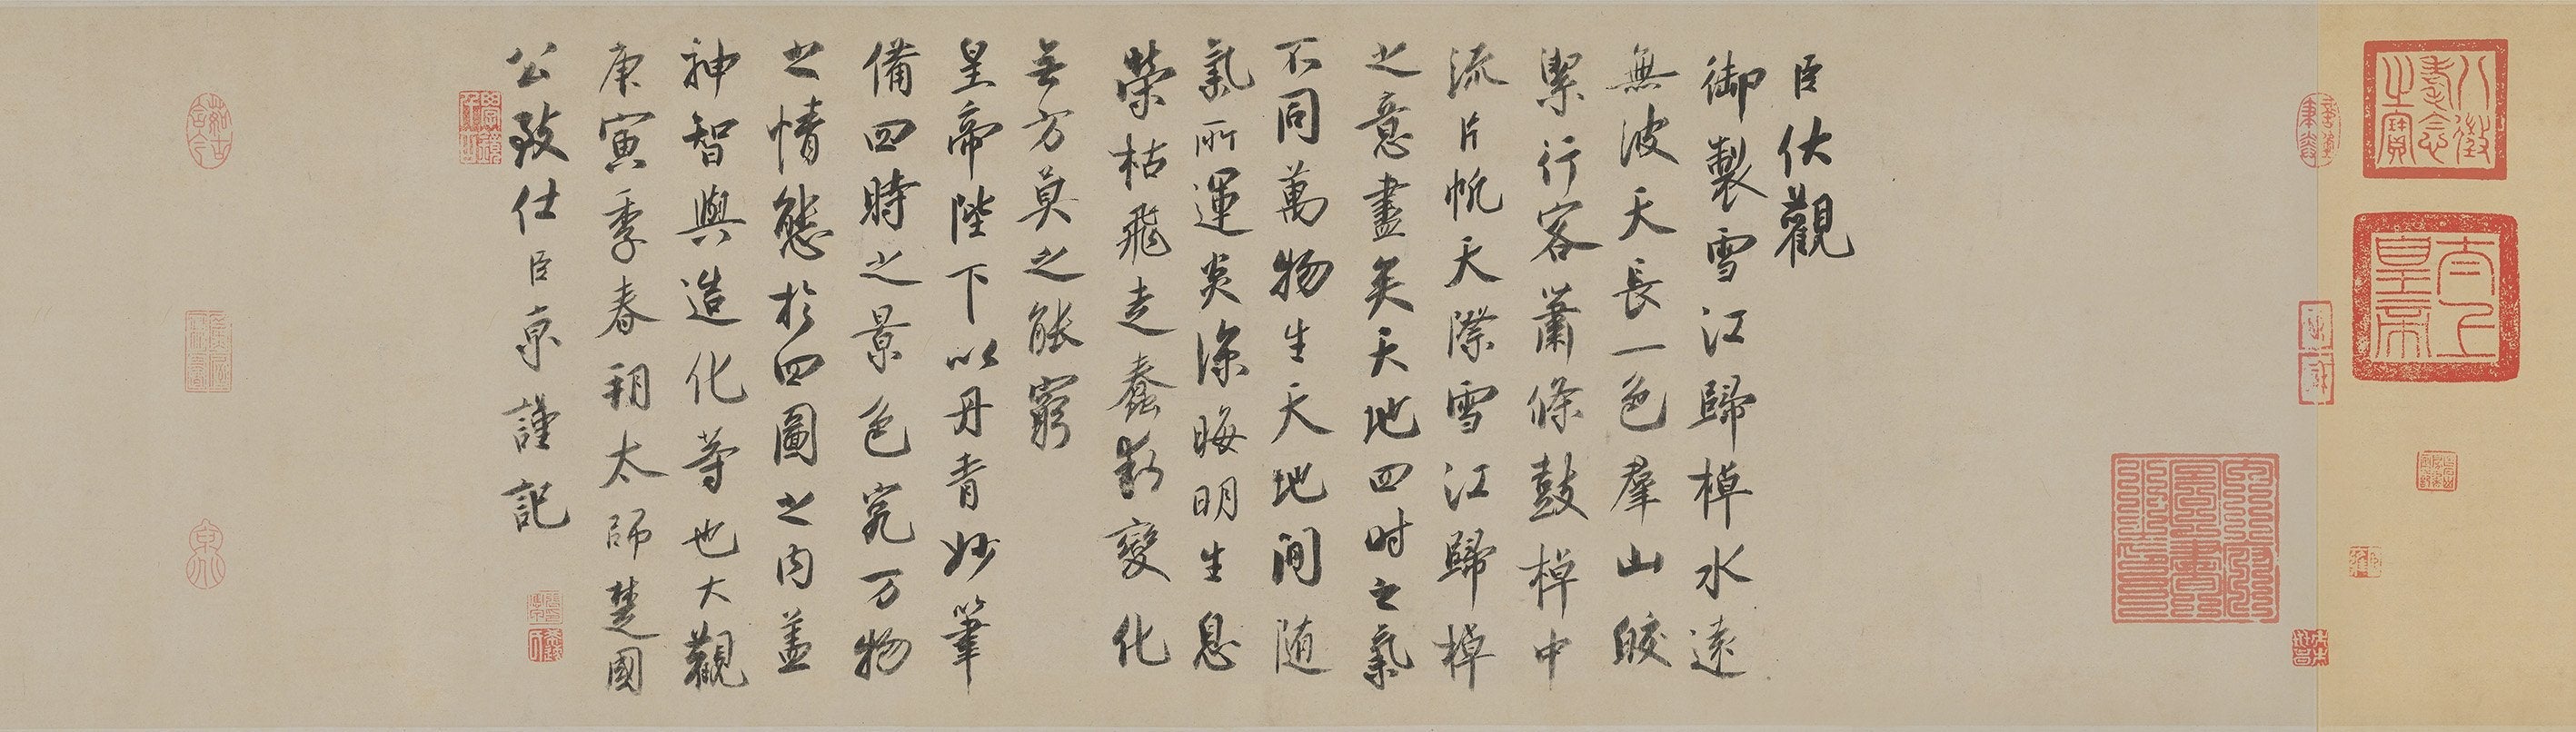 臣伏觀
御製雪江歸棹水遠
無波天長一色群山皎
潔行客蕭條鼓棹中
流片帆天際雪江歸棹
之意盡矣天地四時之氣
不同萬物生天地間随
氣所運炎涼晦明生息
榮枯飛走蠢動變化
無方莫之能窮
皇帝陛下以丹青妙筆
備四時之景色究万物
之情態於四圖之内盖
神智與造化等也大觀
庚寅季春朔太師楚國
公致仕臣京謹記
八徵耄念之寶
太上皇帝